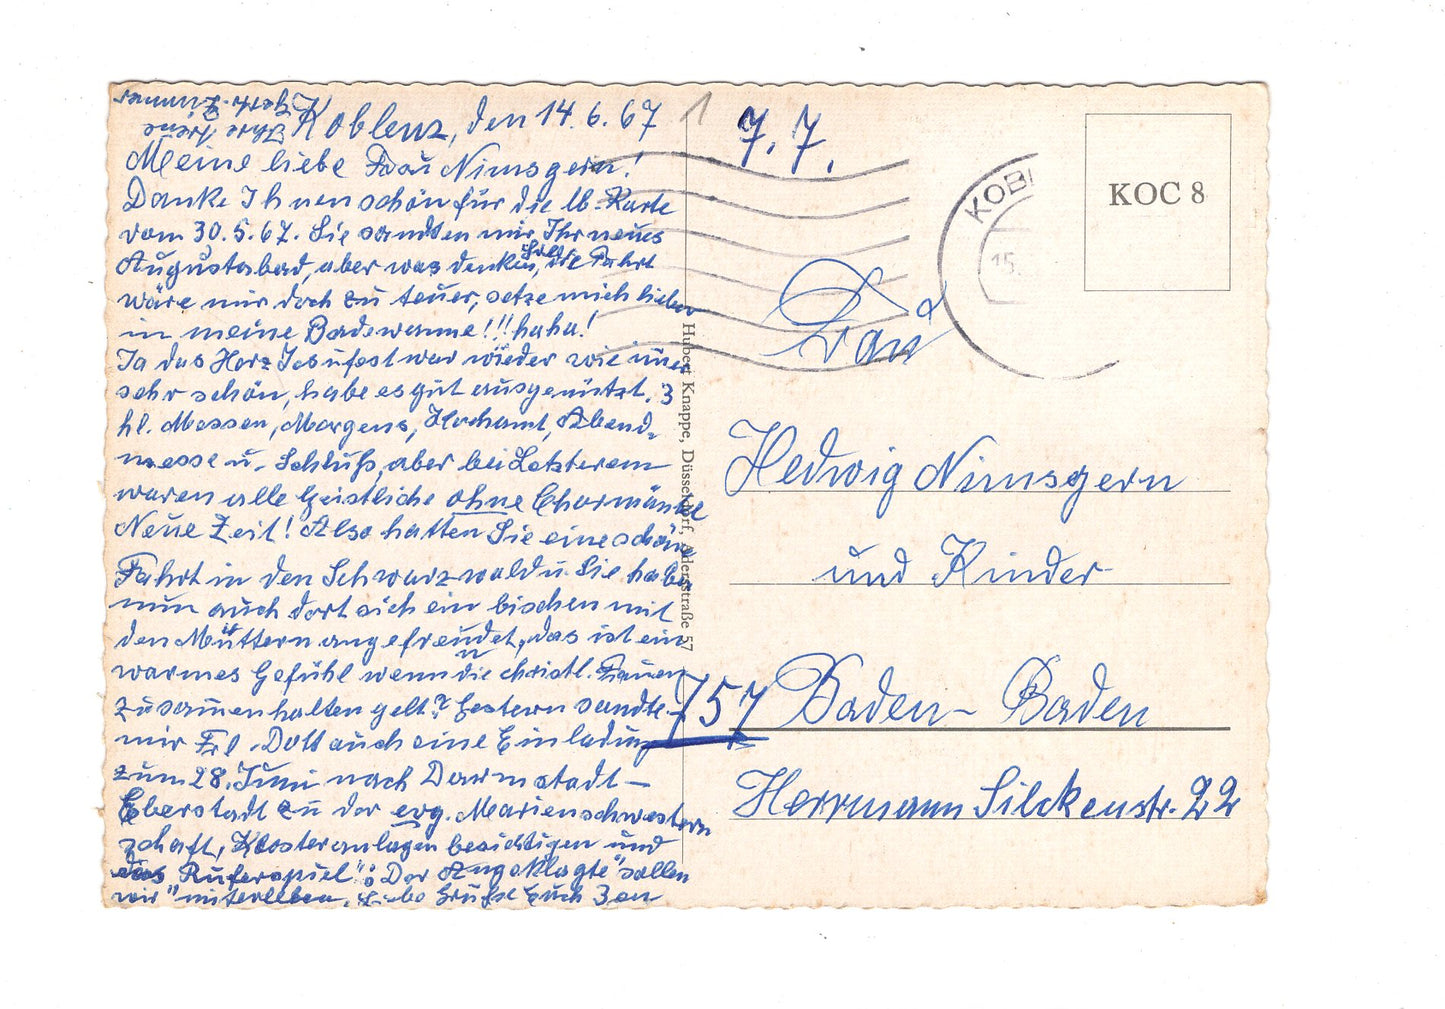 Koblenz, den 14.6.67
Meine liebe Frau Nimsgern!
Danke Ihnen schön für die lb. Karte
vom 30.5.67. Sie sandten mir Ihr neues
Augustabad, aber was denken Sie, die Fahrt
wäre mir doch zu teuer, setze mich lieber
in meine Badewanne!!! haha!
Ja das Herz Jesufest war wieder wie immer
sehr schön, habe es gut ausgenützt. 3
hl. Messen, Morgens, Hochamt, Abend-
messe u. Schluß, aber bei Letzterem
waren alle Geistliche ohne Chormäntel
Neue Zeit! Also hatten Sie eine schöne
Fahrt in den Schwarzwald u. Sie haben
nun auch dort sich ein bischen mit
den Müttern angefreundet, das ist ein
warmes Gefühl wenn die christl. Frauen
zusammenhalten gelt? Gestern sandte
mir Frl. Dott auch eine Einladung
zum 28. Juni nach Darmstadt-
Eberstadt zu der evg. Marienschwestern
schaft, Klosteranlagen besichtigen und
das Ruferspiel": Der Angeklagte" sollen
wir "miterleben. Liebe Grüße Euch 3en
Ihre Irene
Gerh. Zimmer
7.7.
KOBL
15.
KOC 8
Hubert Knappe, Düsseldorf, Adersstraße 57
Frau
Hedwig Nimsgern
und Kinder
757 Baden-Baden
Herrmann Silckenstr. 22